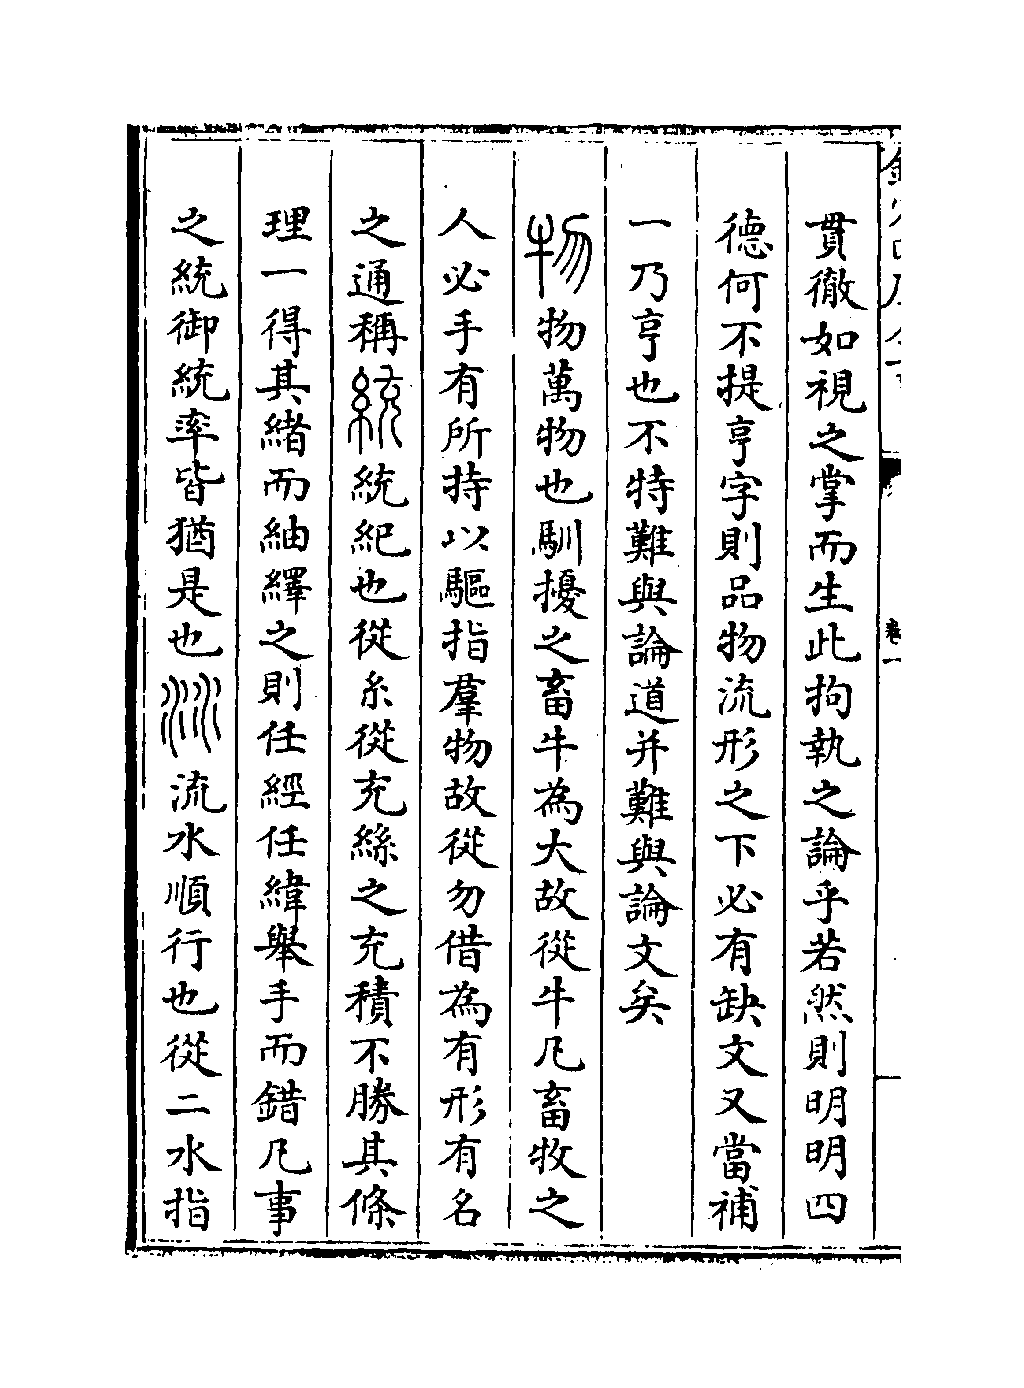 貫徹如視之掌而生此拘執之論乎若然則明明四
德何不提亨字則品物流形之下必有缺文又當補
一乃亨也不特難與論道并難與論文矣
物物萬物也馴擾之畜牛為大故從牛凡畜牧之
人必手有所持以驅指羣物故從勿借為有形有名
之通稱統統紀也從糸從充絲之充積不勝其條
理一得其緒而紬繹之則任經任緯舉手而錯凡事
之統御統率皆猶是也流水順行也從二水指
卷一